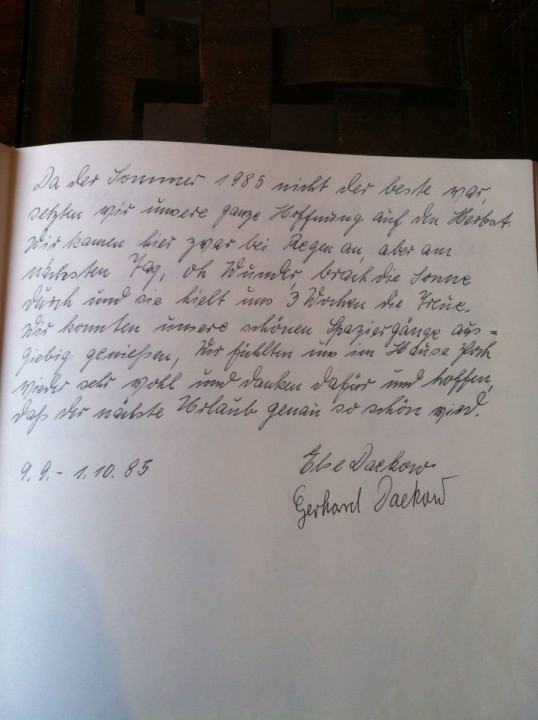 Da der Sommer 1985 nicht der beste war,
setzten wir unsere ganze Hoffnung auf den Herbst.
Wir kamen hier zwar bei Regen an, aber am
nächsten Tag, oh Wunder, brach die Sonne
durch und sie hielt uns 3 Wochen die Treue.
Wir konnten unsere schönen Spaziergänge aus=
giebig genießen, Wir fühlten uns im Hause
wieder sehr wohl und danken dafür und hoffen,
daß der nächste Urlaub genau so schön wird.
9.9. - 1.10.85 Else Daekow
Gerhard Daekow